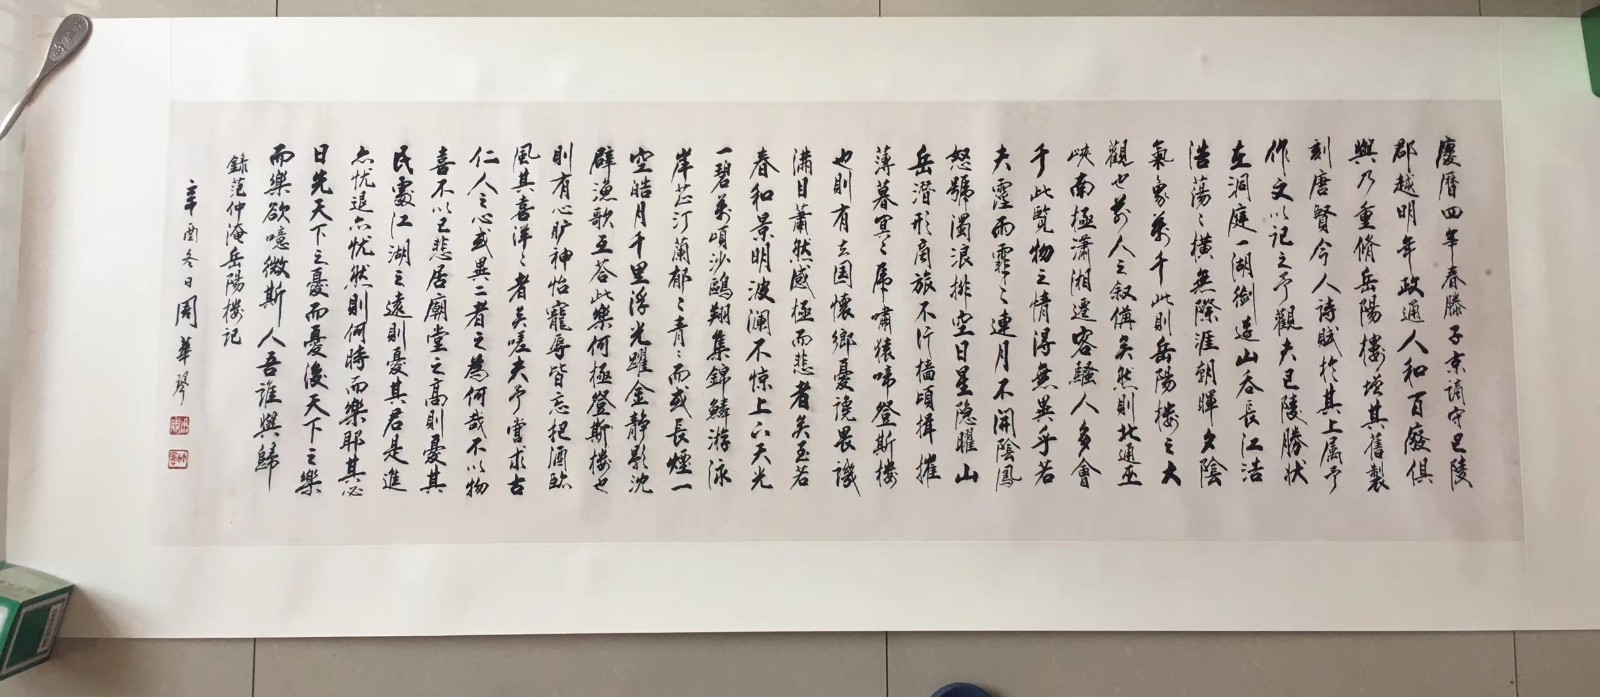 慶曆四年春滕子京謫守巴陵
郡越明年政通人和百廢俱
興乃重脩岳陽樓增其舊製
刻唐賢今人詩賦於其上属予
作文以记之予觀夫巴陵勝状
在洞庭一湖銜远山吞長江浩
浩蕩〻橫無際涯朝暉夕陰
氣象萬千此則岳陽楼之大
觀也前人之叙俻矣然則北通巫
峽南極瀟湘遷客騷人多會
于此覧物之情得無異乎若
夫霪雨霏〻連月不開陰風
怒號濁浪排空日星隐曜山
岳潜形商旅不行檣傾楫摧
薄暮冥〻虎嘯猿啼登斯楼
也則有去国懷鄉憂讒畏譏
滿目蕭然感極而悲者矣至若
春和景明波澜不惊上下天光
一碧萬頃沙鷗翔集錦鱗游泳
岸芷汀蘭郁〻青〻而或長煙一
空皓月千里浮光躍金静影沈
壁漁歌互荅此樂何極登斯楼也
則有心旷神怡寵辱皆忘把酒臨
風其喜洋〻者矣嗟夫予嘗求古
仁人之心或異二者之為何哉不以物
喜不以己悲居廟堂之高則憂其
民處江湖之遠則憂其君是進
亦忧退亦忧然則何時而樂耶其必
曰先天下之憂而憂後天下之樂
而樂欤噫微斯人吾誰與歸
録范仲淹岳陽楼记
辛酉冬日周華琴